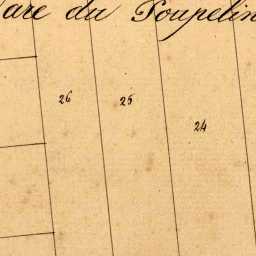 are du Poupelin
26
25
24